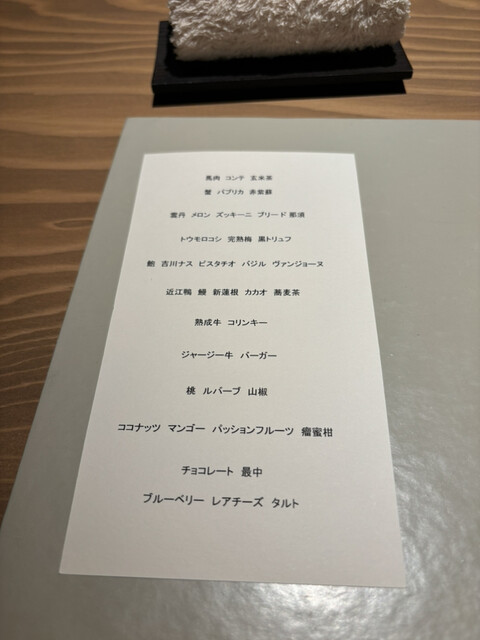 馬肉 コンテ 玄米茶
蟹 パプリカ 赤紫蘇
雲丹 メロン ズッキーニ ブリード那須
トウモロコシ 完熟梅 黒トリュフ
鮑 吉川ナス ピスタチオ バジル ヴァンジョーヌ
近江鴨 鰻 新蓮根 カカオ 蕎麦茶
熟成牛 コリンキー
ジャージー牛 バーガー
桃 ルバーブ 山椒
ココナッツ マンゴー パッションフルーツ 瘤蜜柑
チョコレート 最中
ブルーベリー レアチーズ タルト